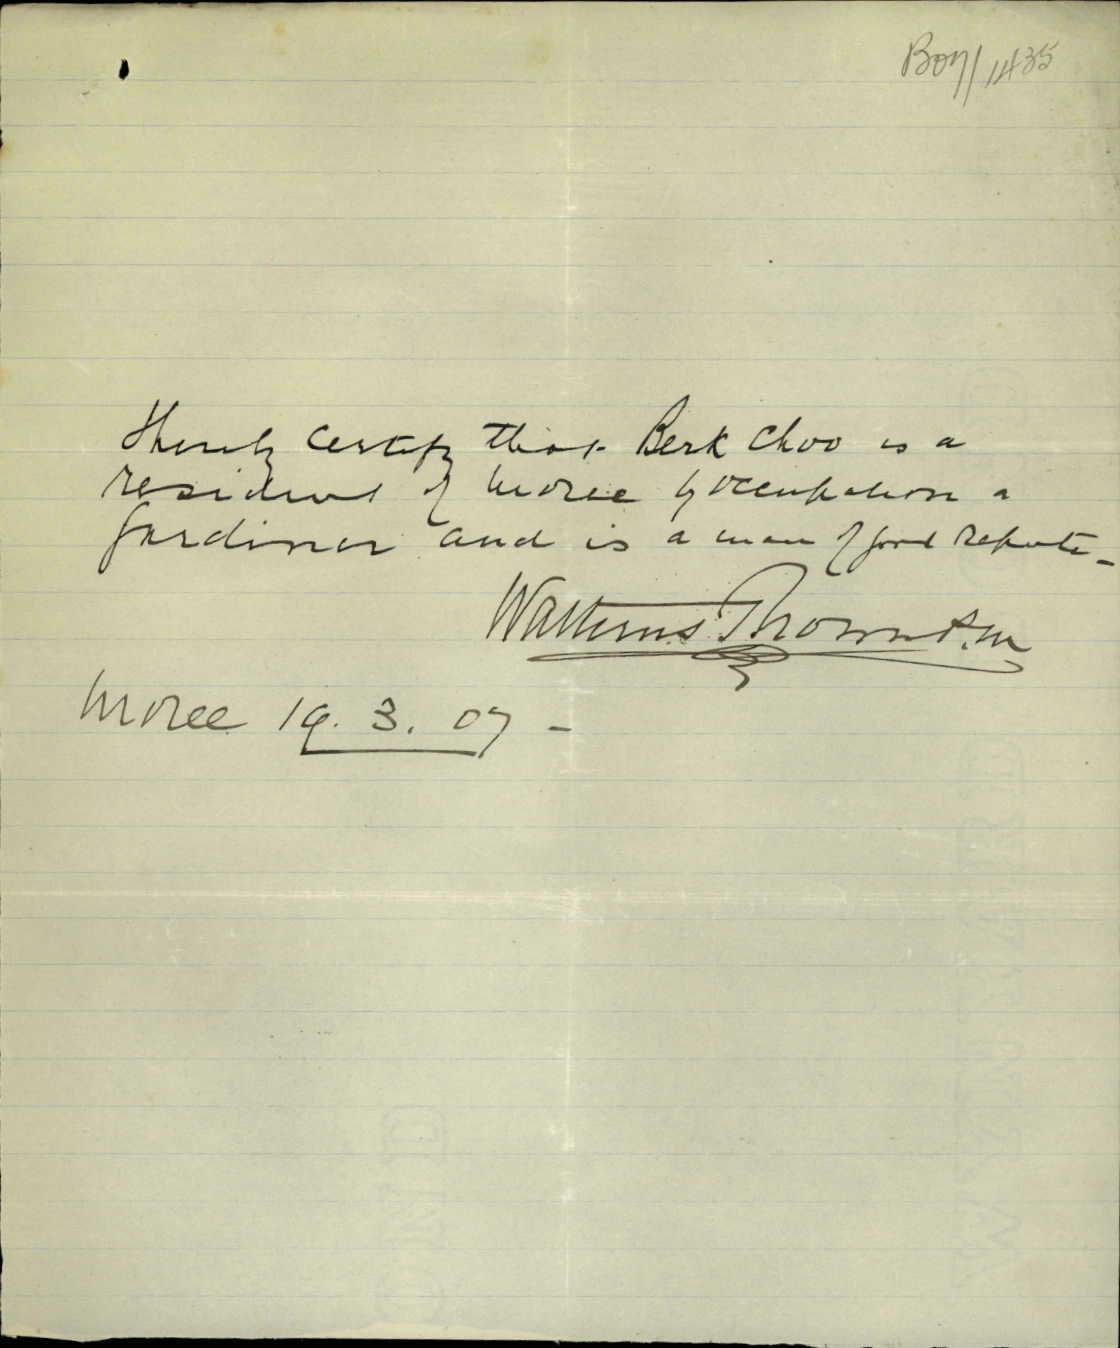 Bo07/1435
I hereby Certify that Berk Choo is a
resident of Moree by occupation a
Gardiner and is a man of good repute -
P.M
Moree 19. 3. 07 -